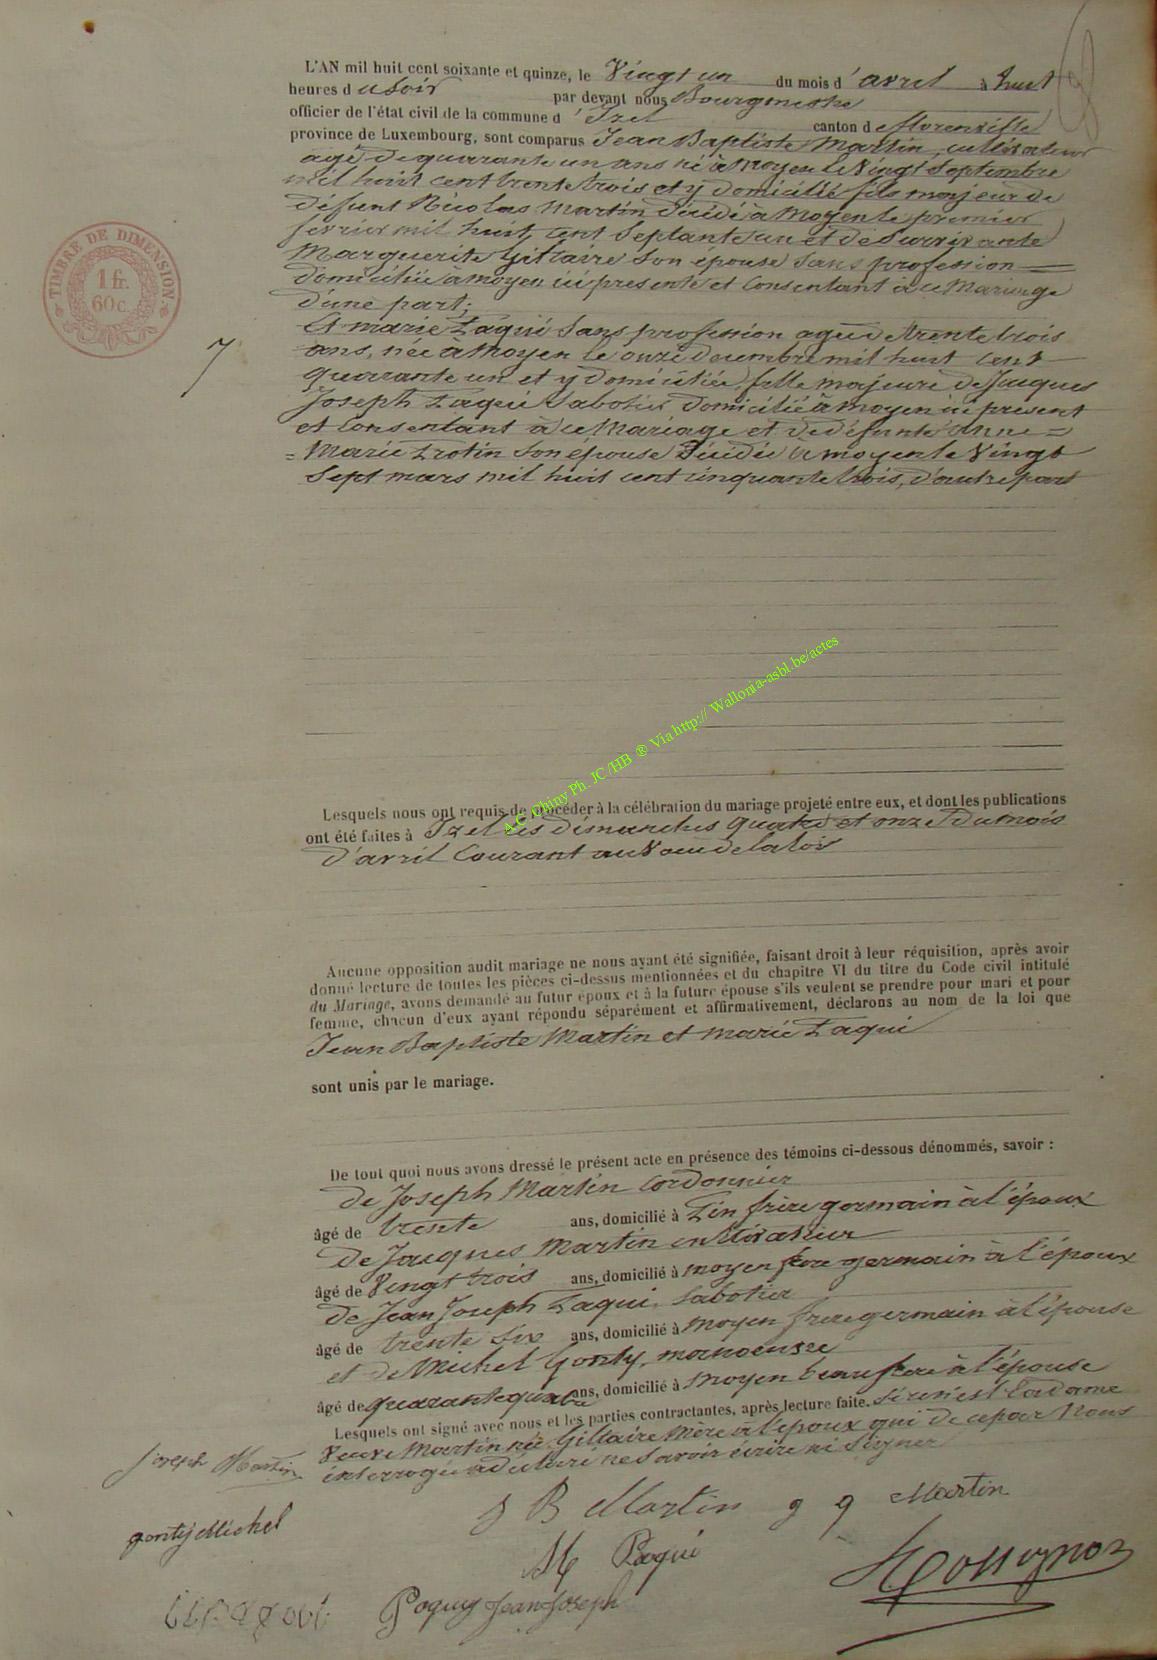 L'AN mil huit cent soixante et quinze, le Vingt un du mois d'avril à huit
heures du soir par devant nous Bourgmestre
officier de l'état civil de la commune d'Izel canton de florenville
province de Luxembourg, sont comparus Jean Baptiste Martin, cultivateur
agé de quarante un ans né à Moyen le Vingt Septembre
mil huit cent trente trois et y domicilié fils majeur de
defunt Nicolas Martin décédé à Moyen le premier
fevrier mil huit cent Septante un et de Survivante
Marguerite Gillaire Son épouse Sans profession
domiciliée à moyen ici présente et Consentant à ce Mariage
d'une part;
TIMBRE DE DIMENSION
1 fr.
60 c.
7
Et marie Paqui Sans profession agée de trente trois
ans, née à Moyen le onze decembre mil huit cent
quarante un et y domiciliée, fille majeure de Jacques
Joseph Paqui Sabotier domicilié à moyen ici present
et Consentant à ce Mariage et de défunte Anne =
= Marie Trotin Son épouse Décédée à moyen le Vingt
Sept mars mil huit cent cinquante trois, d'autre part
A.C. Chiny Ph. JC/HB ® Via http:// Wallonia-asbl.be/actes
Lesquels nous ont requis de procéder à la célébration du mariage projeté entre eux, et dont les publications
ont été faites à Izel les dimanches quatre et onze du mois
d'avril Courant au Voeu de la loi
Aucune opposition audit mariage ne nous ayant été signifiée, faisant droit à leur réquisition, après avoir
donné lecture de toutes les pièces ci-dessus mentionnées et du chapitre VI du titre du Code civil intitulé
du Mariage, avons demandé au futur époux et à la future épouse s'ils veulent se prendre pour mari et pour
femme, chacun d'eux ayant répondu séparément et affirmativement, déclarons au nom de la loi que
Jean Baptiste Martin et Marie Paqui
sont unis par le mariage.
De tout quoi nous avons dressé le présent acte en présence des témoins ci-dessous dénommés, savoir :
de Joseph Martin Cordonnier
âgé de trente ans, domicilié à Pin frère germain à l'époux
de Jacques Martin cultivateur
âgé de Vingt trois ans, domicilié à moyen frère germain à l'époux
de Jean Joseph Paqui, Sabotier
âgé de trente six ans, domicilié à moyen frère germain à l'épouse
et de Michel Gonty, manoeuvre
âgé de quarante quatre ans, domicilié à moyen beau frère à l'épouse
Lesquels ont signé avec nous et les parties contractantes, après lecture faite. Si ce n'est la dame
Veuve Martin née Gillaire Mère à l'époux qui de ce par Nous
interrogée a déclaré ne Savoir écrire ni Signer
Joseph Martin
J B Martin J J Martin
gontij Michel
M Paqui
Poquy Jean Joseph